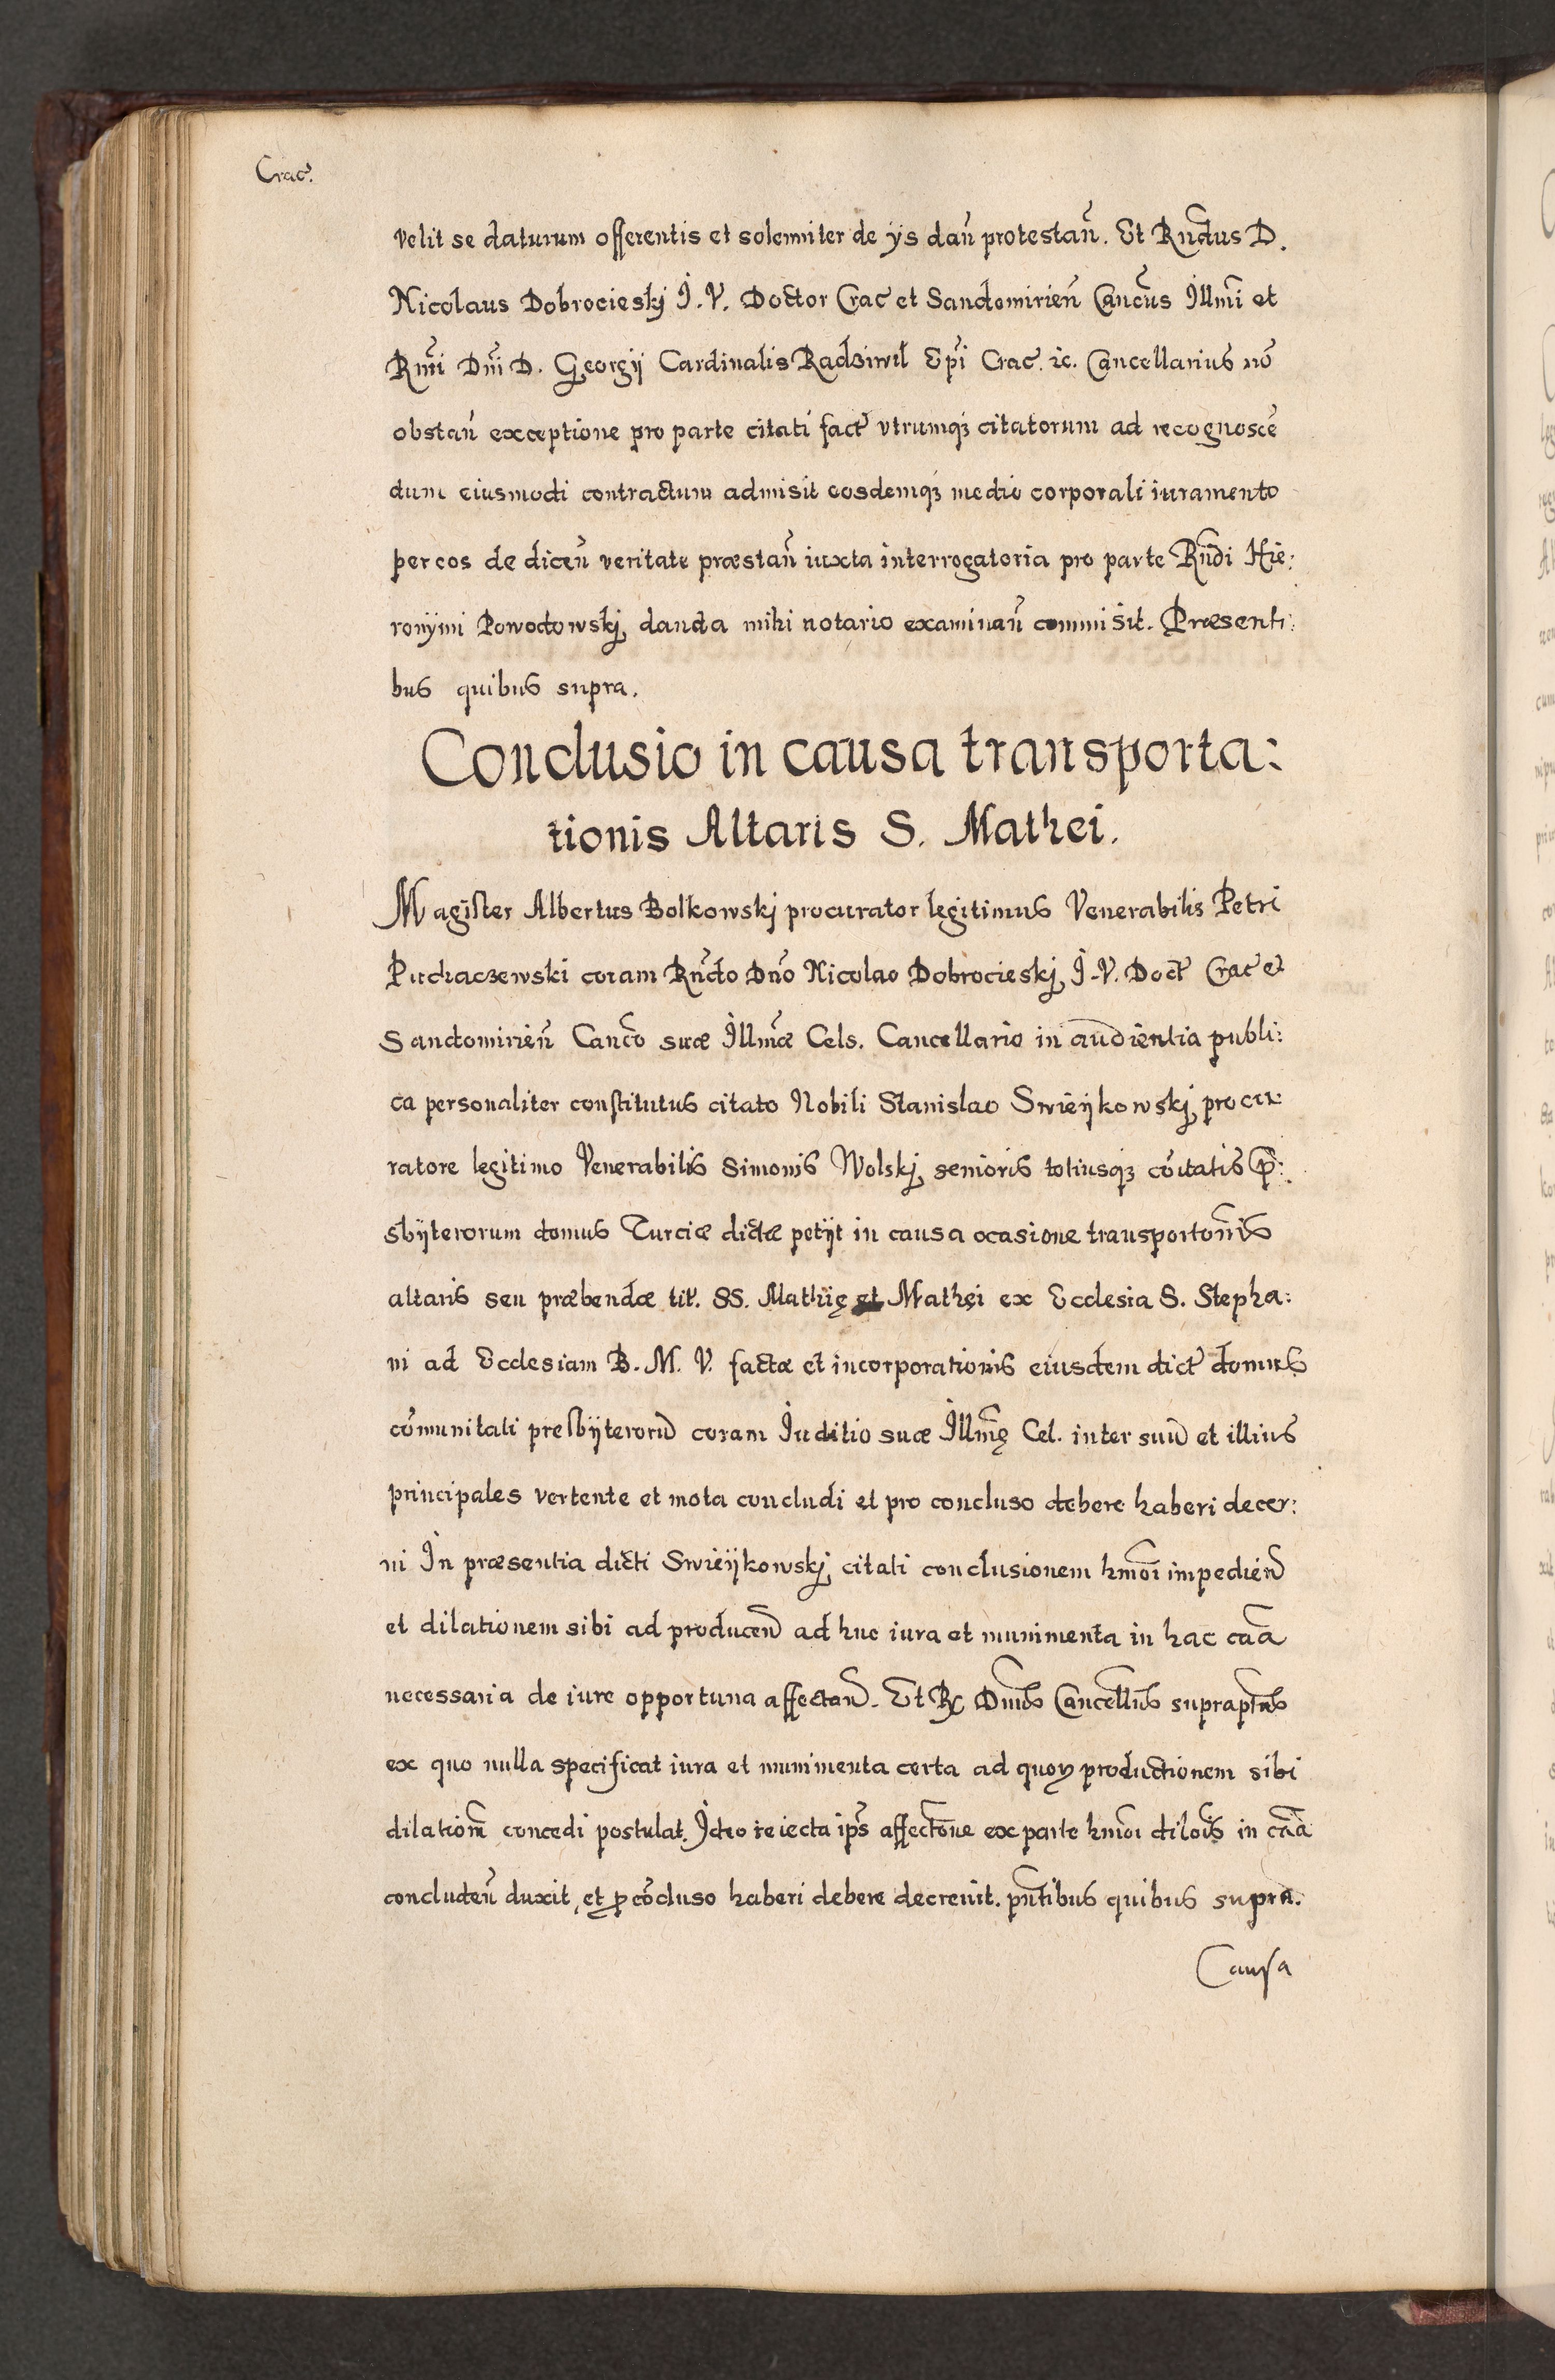 Crac̃.
velit se daturum offerentis et solemniter de ÿs dañ protestañ. Et Rñdus D.
Nicolaus Dobrocieskj I. V. Doctor Crac̃ et Sandomirieñ Canc̃us Illm̃i et
Rm̃i Dñi D. Georgÿ Cardinalis Radziwil Ep̃i Crac̃. ic. Cancellarius nõ
obstañ exceptione pro parte citati fact̃ vtrumqʒ citatorum ad recognoscẽ
dum eiusmodi contractum admisit eosdemqʒ medio corporali iuramento
per eos de diceñ veritate præstañ iuxta interrogatoria pro parte Rñdi Hie:
ronÿmi Powodowskj danda mihi notario examinañ commisit. Præsenti:
bus quibus supra.
Conclusio in causa transporta:
tionis Altaris S. Mathei.
Magister Albertus Bolkowskj procurator legitimus Venerabilis Petri
Puchaczewski coram Rñdo Dño Nicolao Dobrocieskj I. V. Doct̃ Crac̃ et
Sandomirieñ Canc̃o suæ Illm̃æ Cels. Cancellario in audientia publi:
ca personaliter constitutus citato Nobili Stanislao Swieÿkowskj procu:
ratore legitimo Venerabilis Simonis Wolskj senioris totiusqʒ cõitatis p̃:
sbÿterorum domus Turciæ dictæ petÿt in causa ocasione transportoñis
altaris seu præbendæ tit. SS. Mathię et Mathęi ex Ecclesia S. Stepha:
ni ad Ecclesiam B. M. V. factæ et incorporationis eiusdem dict̃ domus
cõmunitati presbÿterorũ coram Iuditio suæ Illm̃ę Cel. inter suũ et illius
principales vertente et mota concludi et pro concluso debere haberi decer:
ni In præsentia dicti Swieÿkowskj citati conclusionem hm̃oi impedieñ
et dilationem sibi ad produceñ ad huc iura et munimenta in hac cãa
necessaria de iure opportuna affectañ. Et R Dñus Cancell̃us suprap̃tus
ex quo nulla specificat iura et munimenta certa ad quoꝝ productionem sibi
dilationẽ concedi postulat. Ideo reiecta ip̃s affectõne ex parte hm̃oi dilõis in cãa
concludeñ duxit, et ꝓ cõcluso haberi debere decreuit. p̃ntibus quibus supra.
Causa